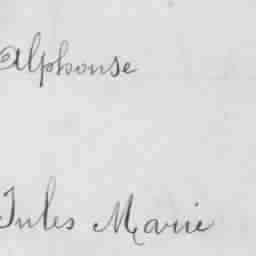 Alphonse
Jules Marie